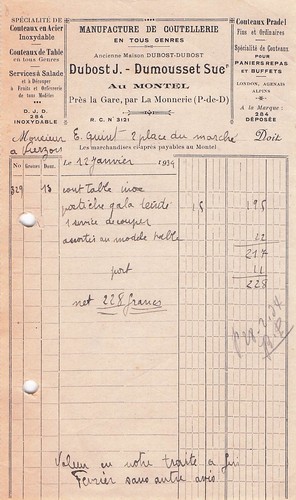 SPÉCIALITÉ DE
Couteaux en Acier
Inoxydable
Couteaux de Table
en tous Genres
Services à Salade
et à Découper
à Fruits et Orfèvrerie
de tous Modèles
D. J. D.
284
INOXYDABLE
MANUFACTURE DE COUTELLERIE
EN TOUS GENRES
Ancienne Maison DUBOST-DUBOST
Dubost J. - Dumousset Sucr
AU MONTEL
Près la Gare, par La Monnerie (P-de-D)
R. C. N° 3121
Couteaux Pradel
Fins et Ordinaires
Spécialité de Couteaux
POUR
PANIERS REPAS
ET BUFFETS
LONDON, AGENAIS
ALPINS
A la Marque :
284
DÉPOSÉE
Monsieur E. 2 place du marché Doit
à Vierzon
Les marchandises coupées payables au Montel
Le 12 janvier 1934
No Grosses Douz.
329 13 cout table inox
gala 15 195
1 service découper
assortis au modèle table 22
217
port 11
228
net 228 francs
Valeur en notre traite à fin
Février sans autre avis